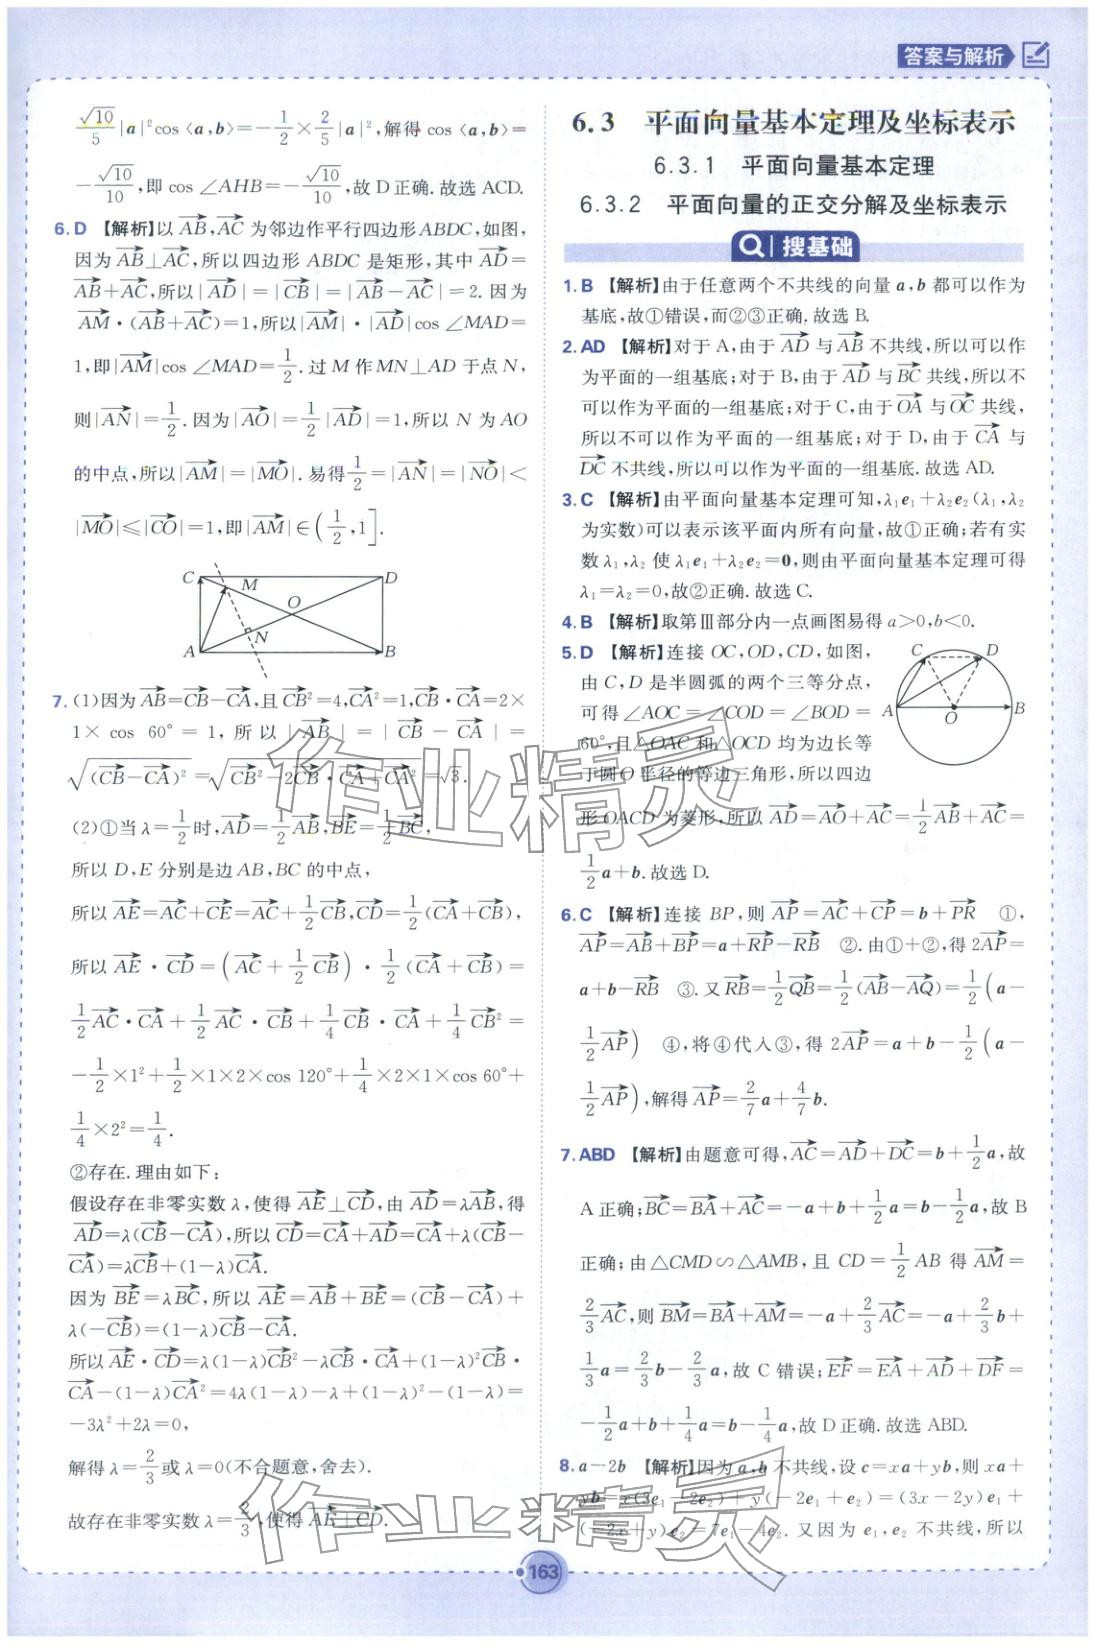 答案与解析
$\frac{\sqrt{10}}{5}|a|^2\cos\langle a,b\rangle=-\frac{1}{2}\times\frac{2}{5}|a|^2$,解得 $\cos\langle a,b\rangle=$
$-\frac{\sqrt{10}}{10}$,即 $\cos\angle AHB=-\frac{\sqrt{10}}{10}$,故 D 正确.故选 ACD.
6. D 【解析】以 $\overrightarrow{AB},\overrightarrow{AC}$ 为邻边作平行四边形 ABDC,如图,
因为 $\overrightarrow{AB}\perp\overrightarrow{AC}$,所以四边形 ABDC 是矩形,其中 $\overrightarrow{AD}=$
$\overrightarrow{AB}+\overrightarrow{AC}$,所以 $|\overrightarrow{AD}|=|\overrightarrow{CB}|=|\overrightarrow{AB}-\overrightarrow{AC}|=2$. 因为
$\overrightarrow{AM}\cdot(\overrightarrow{AB}+\overrightarrow{AC})=1$,所以 $|\overrightarrow{AM}|\cdot|\overrightarrow{AD}|\cos\angle MAD=$
1,即 $|\overrightarrow{AM}|\cos\angle MAD=\frac{1}{2}$.过 M 作 MN⊥AD 于点 N,
则 $|\overrightarrow{AN}|=\frac{1}{2}$.因为 $|\overrightarrow{AO}|=\frac{1}{2}|\overrightarrow{AD}|=1$,所以 N 为 AO
的中点,所以 $|\overrightarrow{AM}|=|\overrightarrow{MO}|$.易得 $\frac{1}{2}=|\overrightarrow{AN}|=|\overrightarrow{NO}|<$
$|\overrightarrow{MO}|\leqslant|\overrightarrow{CO}|=1$,即 $|\overrightarrow{AM}|\in\left(\frac{1}{2},1\right]$.
C M D
O
N
A B
7. (1)因为 $\overrightarrow{AB}=\overrightarrow{CB}-\overrightarrow{CA}$,且 $\overrightarrow{CB}^2=4,\overrightarrow{CA}^2=1,\overrightarrow{CB}\cdot\overrightarrow{CA}=2\times$
$1\times\cos 60°=1$,所以 $|\overrightarrow{AB}|=|\overrightarrow{CB}-\overrightarrow{CA}|=$
$\sqrt{(\overrightarrow{CB}-\overrightarrow{CA})^2}=\sqrt{\overrightarrow{CB}^2-2\overrightarrow{CB}\cdot\overrightarrow{CA}+\overrightarrow{CA}^2}=\sqrt{3}$.
(2)①当 $\lambda=\frac{1}{2}$ 时,$\overrightarrow{AD}=\frac{1}{2}\overrightarrow{AB},\overrightarrow{BE}=\frac{1}{2}\overrightarrow{BC}$,
所以 D,E 分别是边 AB,BC 的中点,
所以 $\overrightarrow{AE}=\overrightarrow{AC}+\overrightarrow{CE}=\overrightarrow{AC}+\frac{1}{2}\overrightarrow{CB},\overrightarrow{CD}=\frac{1}{2}(\overrightarrow{CA}+\overrightarrow{CB})$,
所以 $\overrightarrow{AE}\cdot\overrightarrow{CD}=\left(\overrightarrow{AC}+\frac{1}{2}\overrightarrow{CB}\right)\cdot\frac{1}{2}(\overrightarrow{CA}+\overrightarrow{CB})=$
$\frac{1}{2}\overrightarrow{AC}\cdot\overrightarrow{CA}+\frac{1}{2}\overrightarrow{AC}\cdot\overrightarrow{CB}+\frac{1}{4}\overrightarrow{CB}\cdot\overrightarrow{CA}+\frac{1}{4}\overrightarrow{CB}^2=$
$-\frac{1}{2}\times1^2+\frac{1}{2}\times1\times2\times\cos 120°+\frac{1}{4}\times2\times1\times\cos 60°+$
$\frac{1}{4}\times2^2=\frac{1}{4}$.
②存在.理由如下:
假设存在非零实数 λ,使得 $\overrightarrow{AE}\perp\overrightarrow{CD}$,由 $\overrightarrow{AD}=\lambda\overrightarrow{AB}$,得
$\overrightarrow{AD}=\lambda(\overrightarrow{CB}-\overrightarrow{CA})$,所以 $\overrightarrow{CD}=\overrightarrow{CA}+\overrightarrow{AD}=\overrightarrow{CA}+\lambda(\overrightarrow{CB}-$
$\overrightarrow{CA})=\lambda\overrightarrow{CB}+(1-\lambda)\overrightarrow{CA}$.
因为 $\overrightarrow{BE}=\lambda\overrightarrow{BC}$,所以 $\overrightarrow{AE}=\overrightarrow{AB}+\overrightarrow{BE}=(\overrightarrow{CB}-\overrightarrow{CA})+$
$\lambda(-\overrightarrow{CB})=(1-\lambda)\overrightarrow{CB}-\overrightarrow{CA}$.
所以 $\overrightarrow{AE}\cdot\overrightarrow{CD}=\lambda(1-\lambda)\overrightarrow{CB}^2-\lambda\overrightarrow{CB}\cdot\overrightarrow{CA}+(1-\lambda)^2\overrightarrow{CB}\cdot$
$\overrightarrow{CA}-(1-\lambda)\overrightarrow{CA}^2=4\lambda(1-\lambda)-\lambda+(1-\lambda)^2-(1-\lambda)=$
$-3\lambda^2+2\lambda=0$,
解得 $\lambda=\frac{2}{3}$ 或 λ=0(不合题意,舍去).
故存在非零实数 $\lambda=\frac{2}{3}$,使得 $\overrightarrow{AE}\perp\overrightarrow{CD}$.
6.3 平面向量基本定理及坐标表示
6.3.1 平面向量基本定理
6.3.2 平面向量的正交分解及坐标表示
搜基础
1. B 【解析】由于任意两个不共线的向量 a,b 都可以作为
基底,故①错误,而②③正确.故选 B.
2. AD 【解析】对于 A,由于 $\overrightarrow{AD}$ 与 $\overrightarrow{AB}$ 不共线,所以可以作
为平面的一组基底;对于 B,由于 $\overrightarrow{AD}$ 与 $\overrightarrow{BC}$ 共线,所以不
可以作为平面的一组基底;对于 C,由于 $\overrightarrow{OA}$ 与 $\overrightarrow{OC}$ 共线,
所以不可以作为平面的一组基底;对于 D,由于 $\overrightarrow{CA}$ 与
$\overrightarrow{DC}$ 不共线,所以可以作为平面的一组基底.故选 AD.
3. C 【解析】由平面向量基本定理可知,$\lambda_1e_1+\lambda_2e_2(\lambda_1,\lambda_2$
为实数)可以表示该平面内所有向量,故①正确;若有实
数 $\lambda_1,\lambda_2$ 使 $\lambda_1e_1+\lambda_2e_2=0$,则由平面向量基本定理可得
$\lambda_1=\lambda_2=0$,故②正确.故选 C.
4. B 【解析】取第Ⅲ部分内一点画图易得 a>0,b<0.
5. D 【解析】连接 OC,OD,CD,如图,
由 C,D 是半圆弧的两个三等分点,
可得 ∠AOC=∠COD=∠BOD=
60°,且△OAC 和△OCD 均为边长等
于圆 O 半径的等边三角形,所以四边
C D
A O B
形 OACD 为菱形,所以 $\overrightarrow{AD}=\overrightarrow{AO}+\overrightarrow{AC}=\frac{1}{2}\overrightarrow{AB}+\overrightarrow{AC}=$
$\frac{1}{2}a+b$.故选 D.
6. C 【解析】连接 BP,则 $\overrightarrow{AP}=\overrightarrow{AC}+\overrightarrow{CP}=b+\overrightarrow{PR}$ ①,
$\overrightarrow{AP}=\overrightarrow{AB}+\overrightarrow{BP}=a+\overrightarrow{RP}-\overrightarrow{RB}$ ②.由①+②,得 $2\overrightarrow{AP}=$
$a+b-\overrightarrow{RB}$ ③.又 $\overrightarrow{RB}=\frac{1}{2}\overrightarrow{QB}=\frac{1}{2}(\overrightarrow{AB}-\overrightarrow{AQ})=\frac{1}{2}\Big(a-$
$\frac{1}{2}\overrightarrow{AP}\Big)$ ④,将④代入③,得 $2\overrightarrow{AP}=a+b-\frac{1}{2}\Big(a-$
$\frac{1}{2}\overrightarrow{AP}\Big)$,解得 $\overrightarrow{AP}=\frac{2}{7}a+\frac{4}{7}b$.
7. ABD 【解析】由题意可得,$\overrightarrow{AC}=\overrightarrow{AD}+\overrightarrow{DC}=b+\frac{1}{2}a$,故
A 正确;$\overrightarrow{BC}=\overrightarrow{BA}+\overrightarrow{AC}=-a+b+\frac{1}{2}a=b-\frac{1}{2}a$,故 B
正确;由 △CMD∽△AMB,且 $CD=\frac{1}{2}AB$ 得 $\overrightarrow{AM}=$
$\frac{2}{3}\overrightarrow{AC}$,则 $\overrightarrow{BM}=\overrightarrow{BA}+\overrightarrow{AM}=-a+\frac{2}{3}\overrightarrow{AC}=-a+\frac{2}{3}b+$
$\frac{1}{3}a=\frac{2}{3}b-\frac{2}{3}a$,故 C 错误;$\overrightarrow{EF}=\overrightarrow{EA}+\overrightarrow{AD}+\overrightarrow{DF}=$
$-\frac{1}{2}a+b+\frac{1}{4}a=b-\frac{1}{4}a$,故 D 正确.故选 ABD.
8. a-2b 【解析】因为 a,b 不共线,设 c=xa+yb,则 xa+
$yb=x(3e_1-2e_2)+y(-2e_1+e_2)=(3x-2y)e_1+$
$(-2x+y)e_2=7e_1-4e_2$. 又因为 $e_1,e_2$ 不共线,所以
163
作业精灵
作业精灵